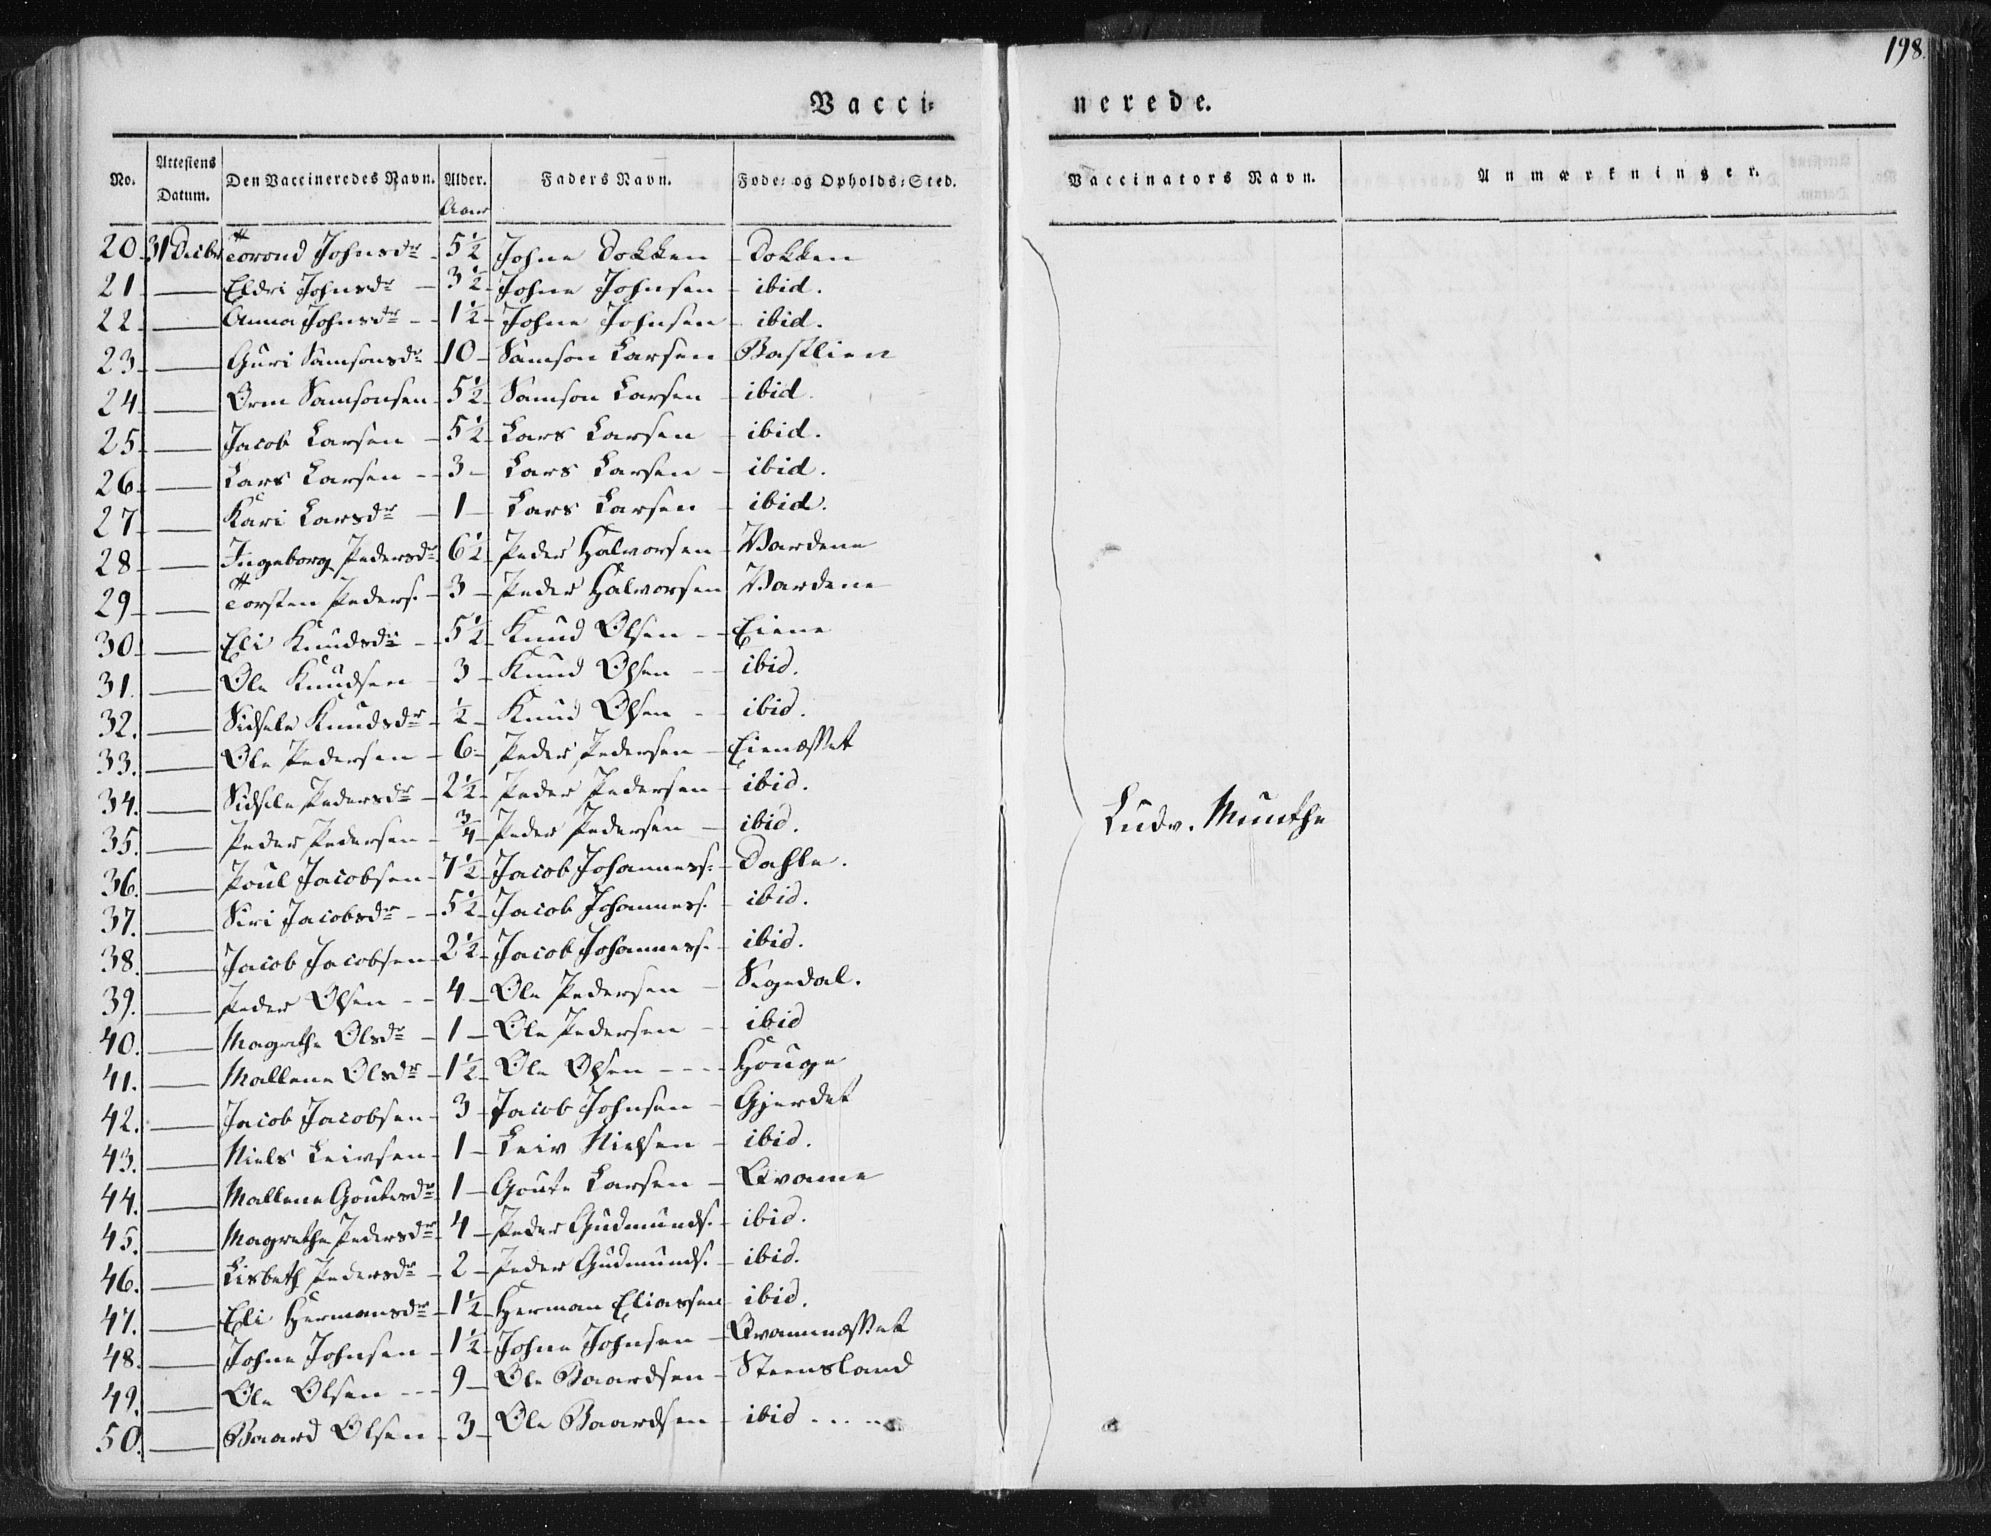 198.
Vacci=
nerede.
No. Attestens Datum. Den Vaccineredes Navn. Alder. Faders Navn. Føde- og Opholds-Sted. Vaccinators Navn. Anmærkninger.
Aar
20 31 Decbr Torond Johnsdr 5½ Johne Dokken Dokken
21 — Eldri Johnsdr 3½ Johne Johnsen ibid.
22 — Anna Johnsdr 1½ Johne Johnsen ibid.
23 — Guri Samsonsdr 10 Samson Larsen Bastlien
24 — Orm Samsonsen 5½ Samson Larsen ibid.
25 — Jacob Larsen 5½ Lars Larsen ibid.
26 — Lars Larsen 3 Lars Larsen ibid.
27 — Kari Larsdr 1 Lars Larsen ibid.
28 — Ingeborg Pedersdr 6½ Peder Halvorsen Vardene
29 — Torsten Peders. 3 Peder Halvorsen Vardene
30 — Eli Knudsdr 5½ Knud Olsen Eiene
31. — Ole Knudsen 3 Knud Olsen ibid.
32. — Sidsele Knudsdr ½ Knud Olsen ibid.
33. — Ole Pedersen 6 Peder Pedersen Eienæsset
34. — Sidsele Pedersdr 2½ Peder Pedersen ibid.
35. — Peder Pedersen ¾ Peder Pedersen ibid.
Ludv. Munthe
36. — Poul Jacobsen 7½ Jacob Johanness. Dahle.
37. — Siri Jacobsdr 5½ Jacob Johanness. ibid.
38. — Jacob Jacobsen 2½ Jacob Johanness. ibid.
39. — Peder Olsen 4 Ole Pedersen Segedal.
40. — Magrethe Olsdr 1 Ole Pedersen ibid
41. — Mallene Olsdr 1½ Ole Olsen Houge
42. — Jacob Jacobsen 3 Jacob Johnsen Gjerdet
43. — Niels Leivsen 1 Leiv Nielsen ibid.
44. — Mallene Goutesdr 1 Goute Larsen Qvame
45. — Magrethe Pedersdr 4 Peder Gudmunds. ibid.
46. — Lisbeth Pedersdr 2 Peder Gudmunds. ibid.
47. — Eli Hermansdr 1½ Herman Eliassen ibid.
48. — Johne Johnsen 1½ Johne Johnsen Qvamnæsset
49. — Ole Olsen 9 Ole Baardsen Steensland
50. — Baard Olsen 3 Ole Baardsen ibid